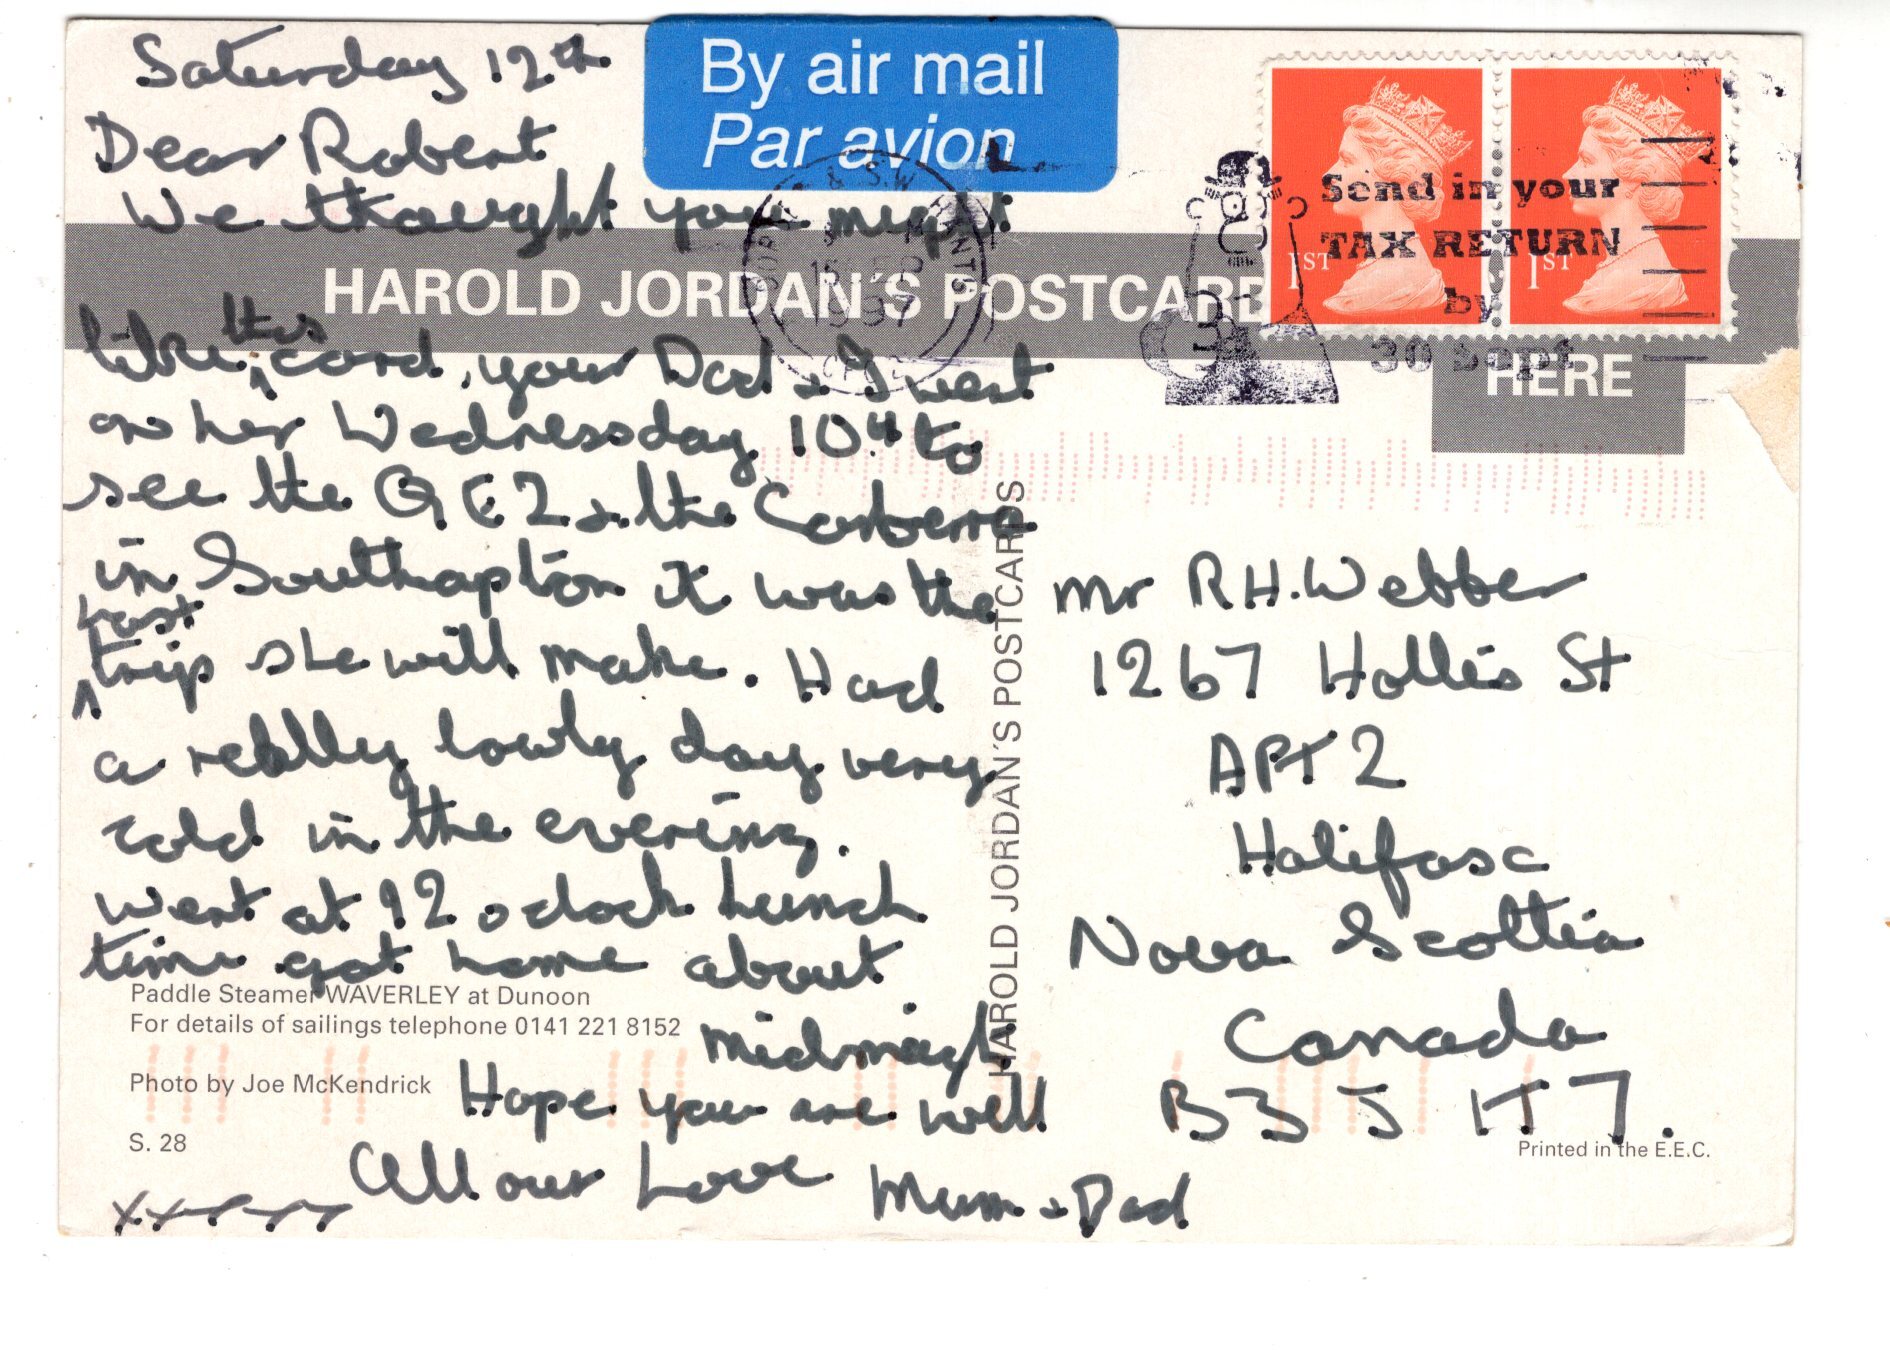 Saturday 12th
By air mail
Par avion
Dear Robert
We thought you might
HAROLD JORDAN'S POSTCARD
HERE
like this card, your Dad & I went
on her Wednessday 10th to
see the QE2 & the Canberra
in Southapton it was the
Last
trip she will make. Had
a reallly lovely day very
cold in the evening.
went at 12 oclock Lunch
time got home about
midnight
Hope you are well
All our Love Mum & Dad
Paddle Steamer WAVERLEY at Dunoon
For details of sailings telephone 0141 221 8152
Photo by Joe McKendrick
S. 28
HAROLD JORDAN'S POSTCARDS
& S.W. HANTS
1997
Send in your
TAX RETURN
by
30 Sept
1ST
1ST
Mr R.H. Webber
1267 Hollis St
APT 2
Halifax
Nova Scottia
Canada
B3J 1T7.
Printed in the E.E.C.